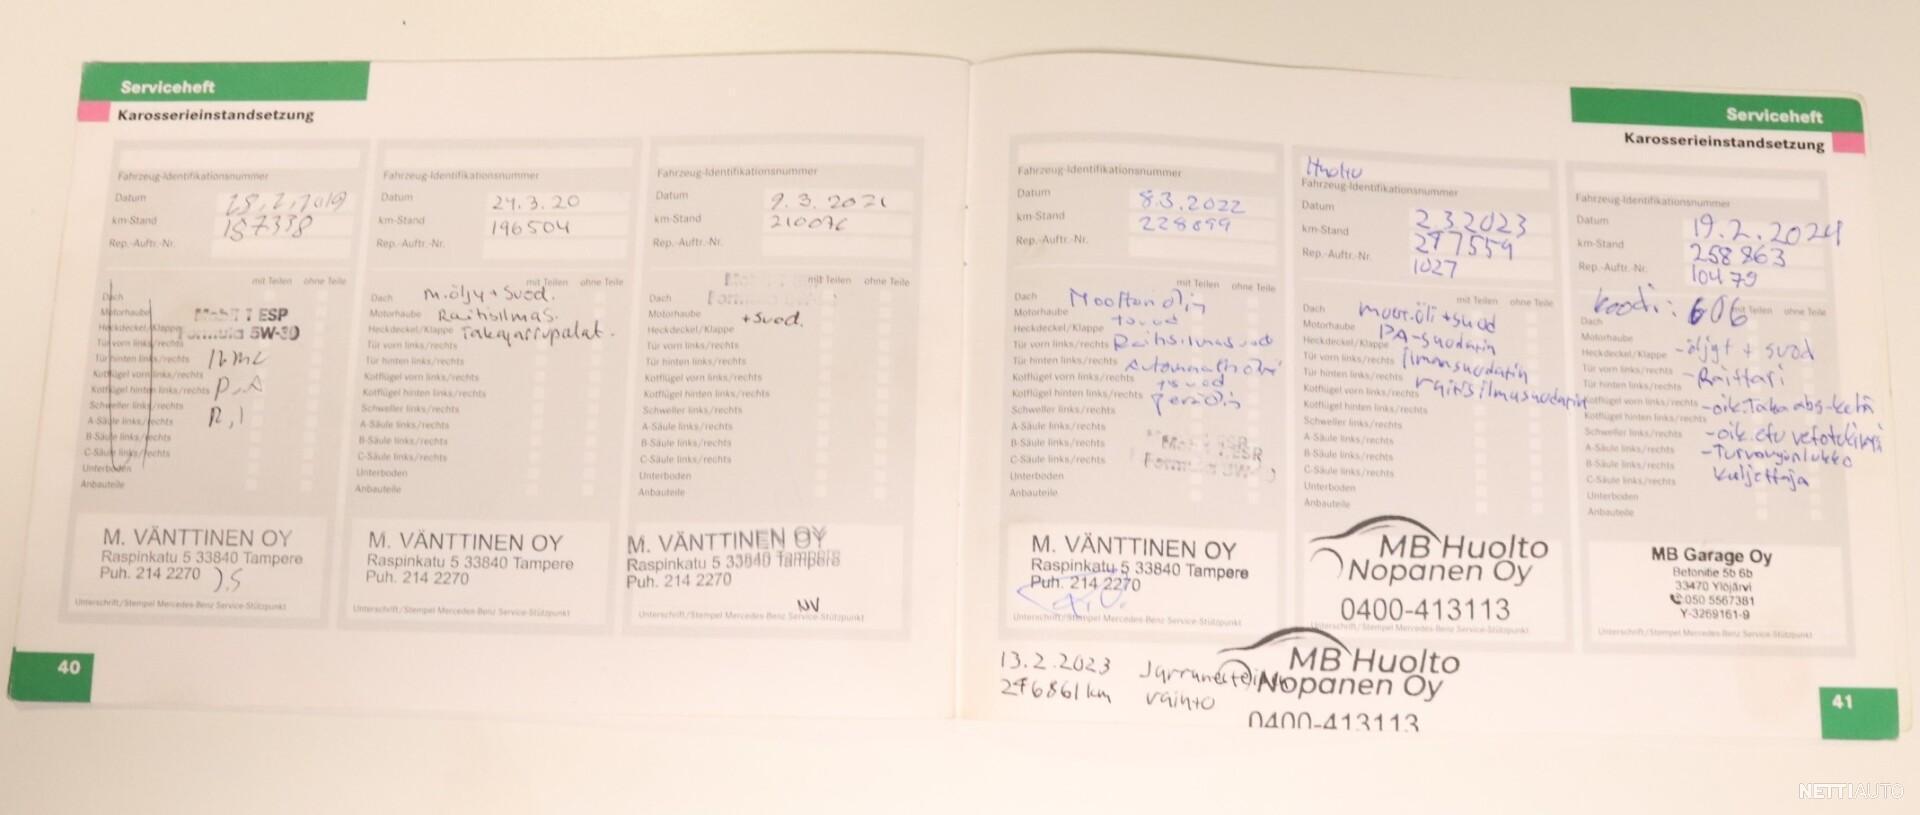 Serviceheft
Karosserieinstandsetzung
Fahrzeug-Identifikationsnummer
Datum 28.2.2019
km-Stand 187338
Rep.-Auftr.-Nr.
mit Teilen ohne Teile
Dach
Motorhaube ESP
Heckdeckel/Klappe Formula 5W-30
Tür vorn links/rechts
Tür hinten links/rechts
Kotflügel vorn links/rechts
Kotflügel hinten links/rechts
Schweller links/rechts
A-Säule links/rechts
B-Säule links/rechts
C-Säule links/rechts
Unterboden
Anbauteile
M. VÄNTTINEN OY
Raspinkatu 5 33840 Tampere
Puh. 214 2270
Unterschrift/Stempel Mercedes-Benz Service-Stützpunkt
Fahrzeug-Identifikationsnummer
Datum 24.3.20
km-Stand 196504
Rep.-Auftr.-Nr.
mit Teilen ohne Teile
Dach m.öljy + suod.
Motorhaube Raitisilmas.
Heckdeckel/Klappe Takajarrupalat.
Tür vorn links/rechts
Tür hinten links/rechts
Kotflügel vorn links/rechts
Kotflügel hinten links/rechts
Schweller links/rechts
A-Säule links/rechts
B-Säule links/rechts
C-Säule links/rechts
Unterboden
Anbauteile
M. VÄNTTINEN OY
Raspinkatu 5 33840 Tampere
Puh. 214 2270
Unterschrift/Stempel Mercedes-Benz Service-Stützpunkt
Fahrzeug-Identifikationsnummer
Datum 9.3.2021
km-Stand 210076
Rep.-Auftr.-Nr.
mit Teilen ohne Teile
Dach
Motorhaube +suod.
Heckdeckel/Klappe
Tür vorn links/rechts
Tür hinten links/rechts
Kotflügel vorn links/rechts
Kotflügel hinten links/rechts
Schweller links/rechts
A-Säule links/rechts
B-Säule links/rechts
C-Säule links/rechts
Unterboden
Anbauteile
M. VÄNTTINEN OY
Raspinkatu 5 33840 Tampere
Puh. 214 2270
NV
Unterschrift/Stempel Mercedes-Benz Service-Stützpunkt
40
Serviceheft
Karosserieinstandsetzung
Fahrzeug-Identifikationsnummer
Datum 8.3.2022
km-Stand 228899
Rep.-Auftr.-Nr.
mit Teilen ohne Teile
Dach
Motorhaube
Heckdeckel/Klappe
Tür vorn links/rechts Raitisilmasuod
Tür hinten links/rechts
Kotflügel vorn links/rechts
Kotflügel hinten links/rechts
Schweller links/rechts
A-Säule links/rechts
B-Säule links/rechts
C-Säule links/rechts
Unterboden
Anbauteile
M. VÄNTTINEN OY
Raspinkatu 5 33840 Tampere
Puh. 214 2270
Unterschrift/Stempel Mercedes-Benz Service-Stützpunkt
13.2.2023
246861 km vaihto
MB Huolto
Nopanen Oy
0400-413113
Huolto
Fahrzeug-Identifikationsnummer
Datum 2.3.2023
km-Stand 247559
Rep.-Auftr.-Nr. 1027
mit Teilen ohne Teile
Dach moot.öli+suod
Motorhaube PA-suodatin
Heckdeckel/Klappe ilmansuodatin
Tür vorn links/rechts raitisilmusuodatin
Tür hinten links/rechts
Kotflügel vorn links/rechts
Kotflügel hinten links/rechts
Schweller links/rechts
A-Säule links/rechts
B-Säule links/rechts
C-Säule links/rechts
Unterboden
Anbauteile
MB Huolto
Nopanen Oy
0400-413113
Unterschrift/Stempel Mercedes-Benz Service-Stützpunkt
Fahrzeug-Identifikationsnummer
Datum 19.2.2024
km-Stand 258863
Rep.-Auftr.-Nr. 10479
koodi: 606
mit Teilen ohne Teile
Dach
Motorhaube
Heckdeckel/Klappe -öljyt + suod
Tür vorn links/rechts -Raittari
Tür hinten links/rechts
Kotflügel vorn links/rechts -oik.Taka abs-kehä
Kotflügel hinten links/rechts
Schweller links/rechts -oik.etu
A-Säule links/rechts -Turvavyönlukko
B-Säule links/rechts kuljettaja
C-Säule links/rechts
Unterboden
Anbauteile
MB Garage Oy
Betonitie 5b 6b
33470 Ylöjärvi
050 5567381
Y-3269161-9
Unterschrift/Stempel Mercedes-Benz Service-Stützpunkt
41
NETTIAUTO